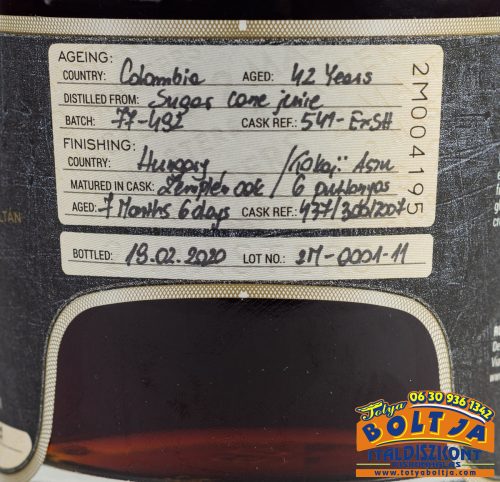 AGEING:
COUNTRY: Colombia AGED: 42 Years
DISTILLED FROM: Sugar cane juice
BATCH: 77-492 CASK REF.: 541-ExSH
FINISHING:
COUNTRY: Hungary / Tokaji Aszu
MATURED IN CASK: Zemplén oak / 6 puttonyos
AGED: 7 Months 6 days CASK REF.: 477/306/2007
2M004195
BOTTLED: 18.02.2020 LOT NO.: 2M-0001-11
LTÁN
06 30 936 1342
Totya
BOLTJA
ITALDISZKONT
www.totyaboltja.com